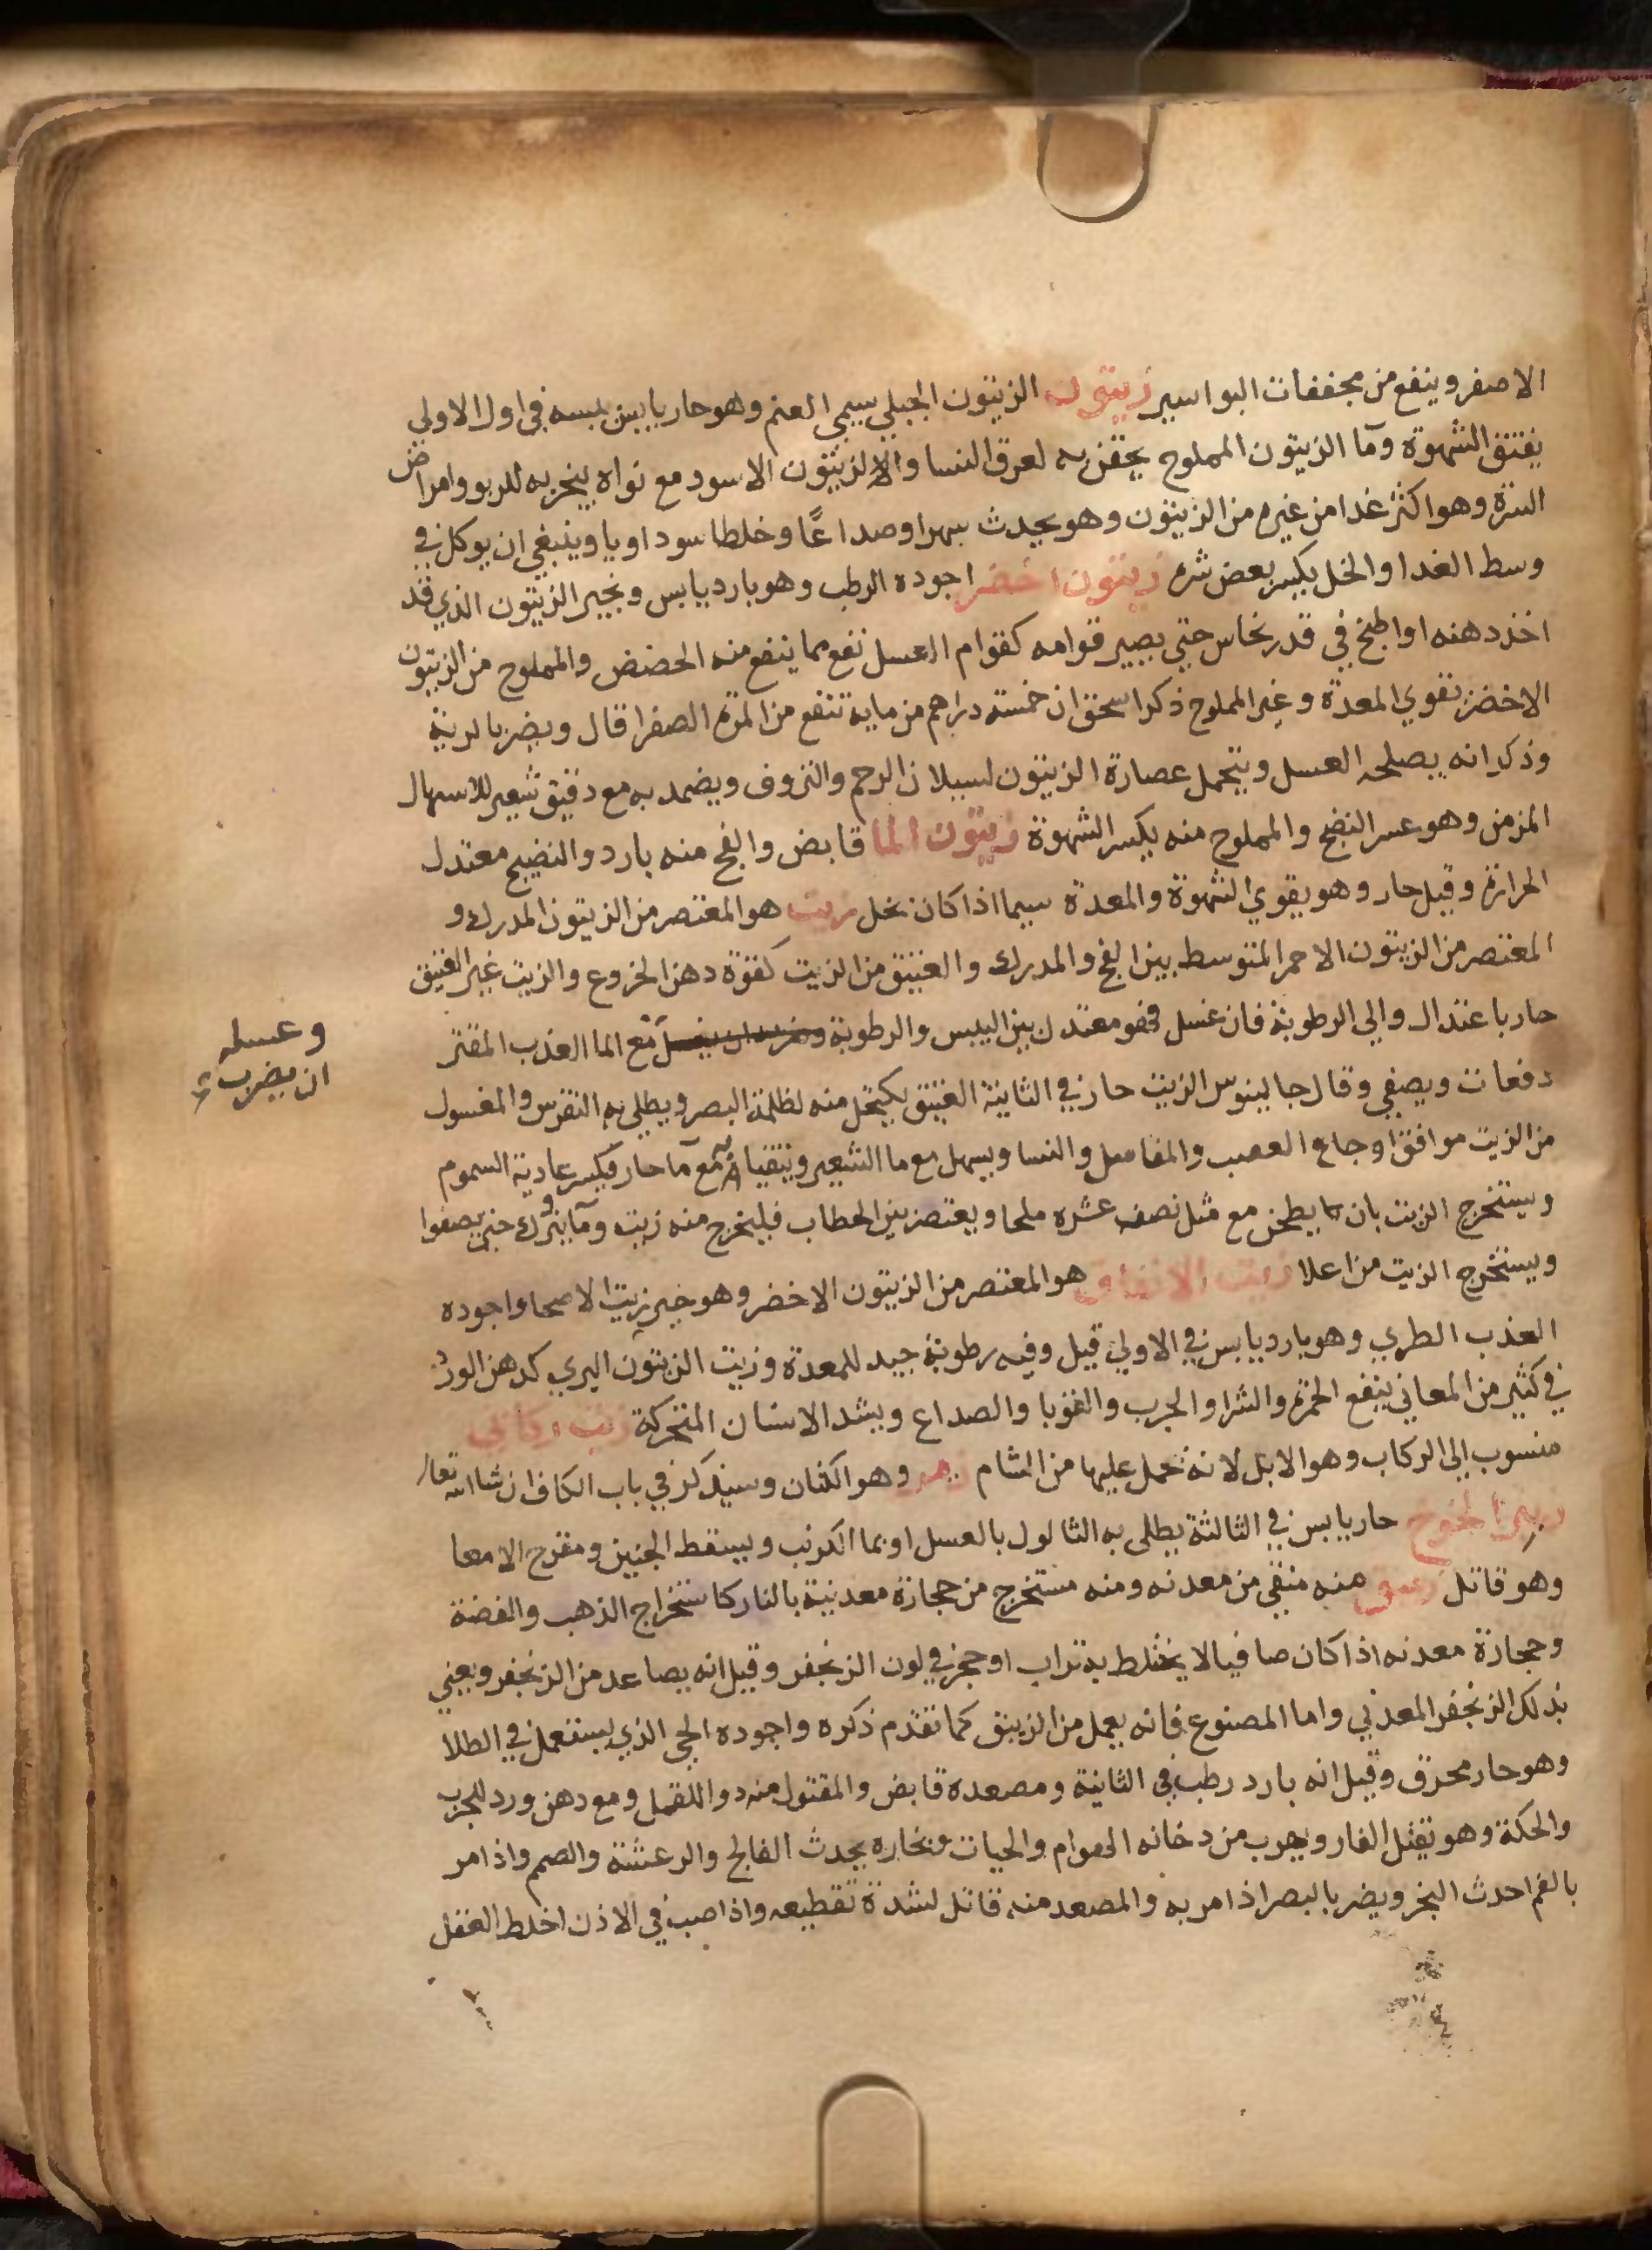 الاصفر وينفع من مجففات البواسير زيتون الزيتون الجبلي يسمي العنم وهو حار يابس يبسه في اول الاولي
يفتق الشهوة ومآ الزيتون المملوح يحقن به لعرق النسا والزيتون الاسود مع نواه يبخر به للربو وامراض
السرة وهو اكثر غدا من غيره من الزيتون وهو يحدث سهرا وصداعًا وخلطا سوداويا وينبغي ان يوكل في
وسط الغدا والخل يكسر بعض شره زيتون اخضر اجوده الرطب وهو بارد يابس ونجير الزيتون الذي قد
اخذ دهنه اوا طبخ في قدر نحاس حتى يصير قوامه كقوام العسل نفع مما ينفع منه الحضض والمملوح من الزيتون
الاخضر يقوي المعدة وغير المملوح ذكر اسحق ان خمسة دراهم من مايه تنفع من المرة الصفرا قال ويضر بالرية
وذكر انه يصلحه العسل ويتحمل عصارة الزيتون لسيلان الرحم والنزوف ويضمد به مع دقيق شعير للاسهال
المزمن وهو عسر النضج والمملوح منه يكسر الشهوة زيتون الما قابض والفج منه بارد والنضيج معتدل
الحرارة وقيل حار وهو يقوي الشهوة والمعدة سيما اذا كان بخل زيت هو المعتصر من الزيتون المدرك و
المعتصر من الزيتون الاحمر المتوسط بين الفج والمدرك والعتيق من الزيت كقوة دهن الخروع والزيت غير العتيق
حار باعتدال والي الرطوبة فان غسل فهو معتدل بين اليبس والرطوبة مع الما العذب المفتر
وعسله
ان يضرب
دفعات ويصفي وقال جالينوس الزيت حار في الثانية العتيق يكتحل منه لظلمة البصر ويطلي به النقرس والمغسول
من الزيت موافق اوجاع العصب والمفاصل والنسا ويسهل مع ما الشعير ويتقيا مع مآ حار فيكسر عادية السموم
ويستخرج الزيت بان يطحن مع مثل نصف عشره ملحا ويعتصر بين الحطاب فيلخرج منه زيت ومآ ويترك حتى يصفوا
ويستخرج الزيت من اعلا زيت الانفاق هو المعتصر من الزيتون الاخضر وهو خير زيت الاصحا واجوده
العذب الطري وهو بارد يابس في الاولي قيل وفيه رطوبة جيد للمعدة وزيت الزيتون البري كدهن الورد
في كثير من المعاني ينفع الحمرة والشرا والجرب والقوبا والصداع ويشد الاسنان المتحركة زيت ركابي
منسوب الي الركاب وهو الابل لانه يحمل عليها من الشام وهو الكتان وسيذكر في باب الكاف ان شا الله تعالى
حار يابس في الثالثة يطلى به الثالول بالعسل او بما الكرنب ويسقط الجنين ومقرح الامعا
وهو قاتل زيبق منه منقي من معدنه ومنه مستخرج من حجارة معدنية بالنار كاستخراج الذهب والفضة
وحجارة معدنه اذا كان صافيا لا يختلط به تراب او حجر في لون الزنجفر وقيل انه يصاعد من الزنجفر ويعني
بذلك الزنجفر المعدني واما المصنوع فانه يعمل من الزيبق كما تقدم ذكره واجوده الحي الذي يستعمل في الطلا
وهو حار محرق وقيل انه بارد رطب في الثانية ومصعده قابض والمقتول منه دوا للقمل ومع دهن ورد للجرب
والحكة وهو يقتل الفار ويهرب من دخانه الهوام والحيات وبخاره يحدث الفالج والرعشة والصمم واذا مر
بالفم احدث البخر ويضر بالبصر اذا مر به والمصعد منه قاتل لشدة تقطيعه واذا صب في الاذن اخلط العقل